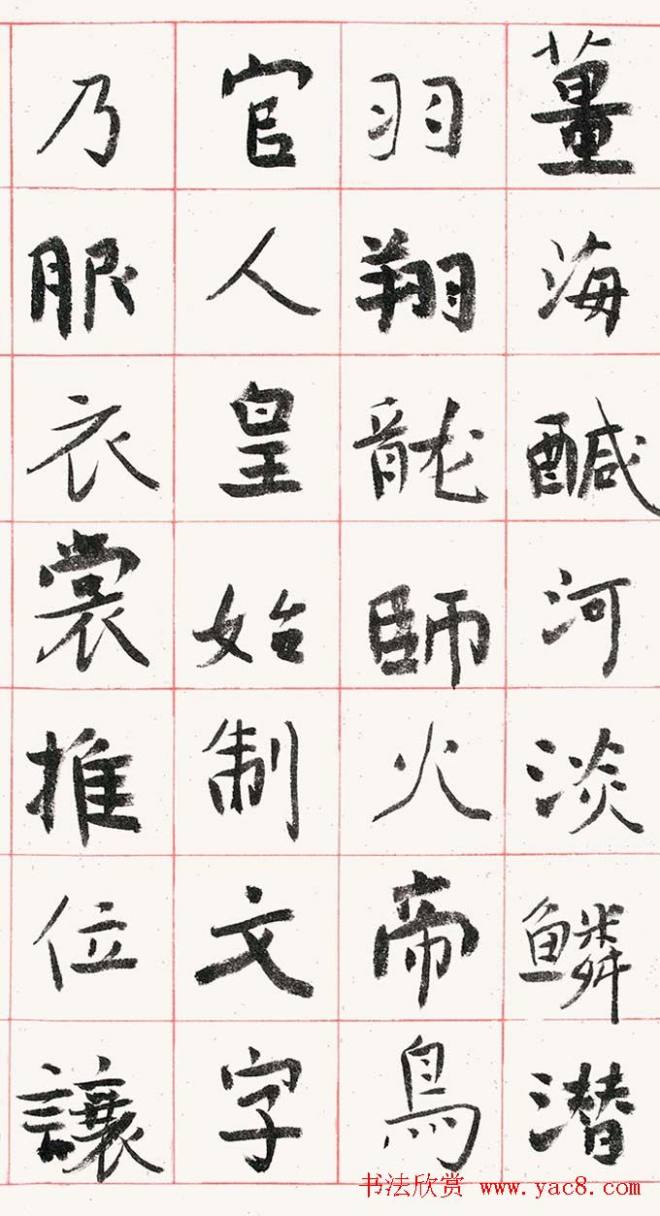 薑海醎河淡鳞潜
羽翔龍師火帝鳥
官人皇始制文字
乃服衣裳推位讓
书法欣赏 www.yac8.com